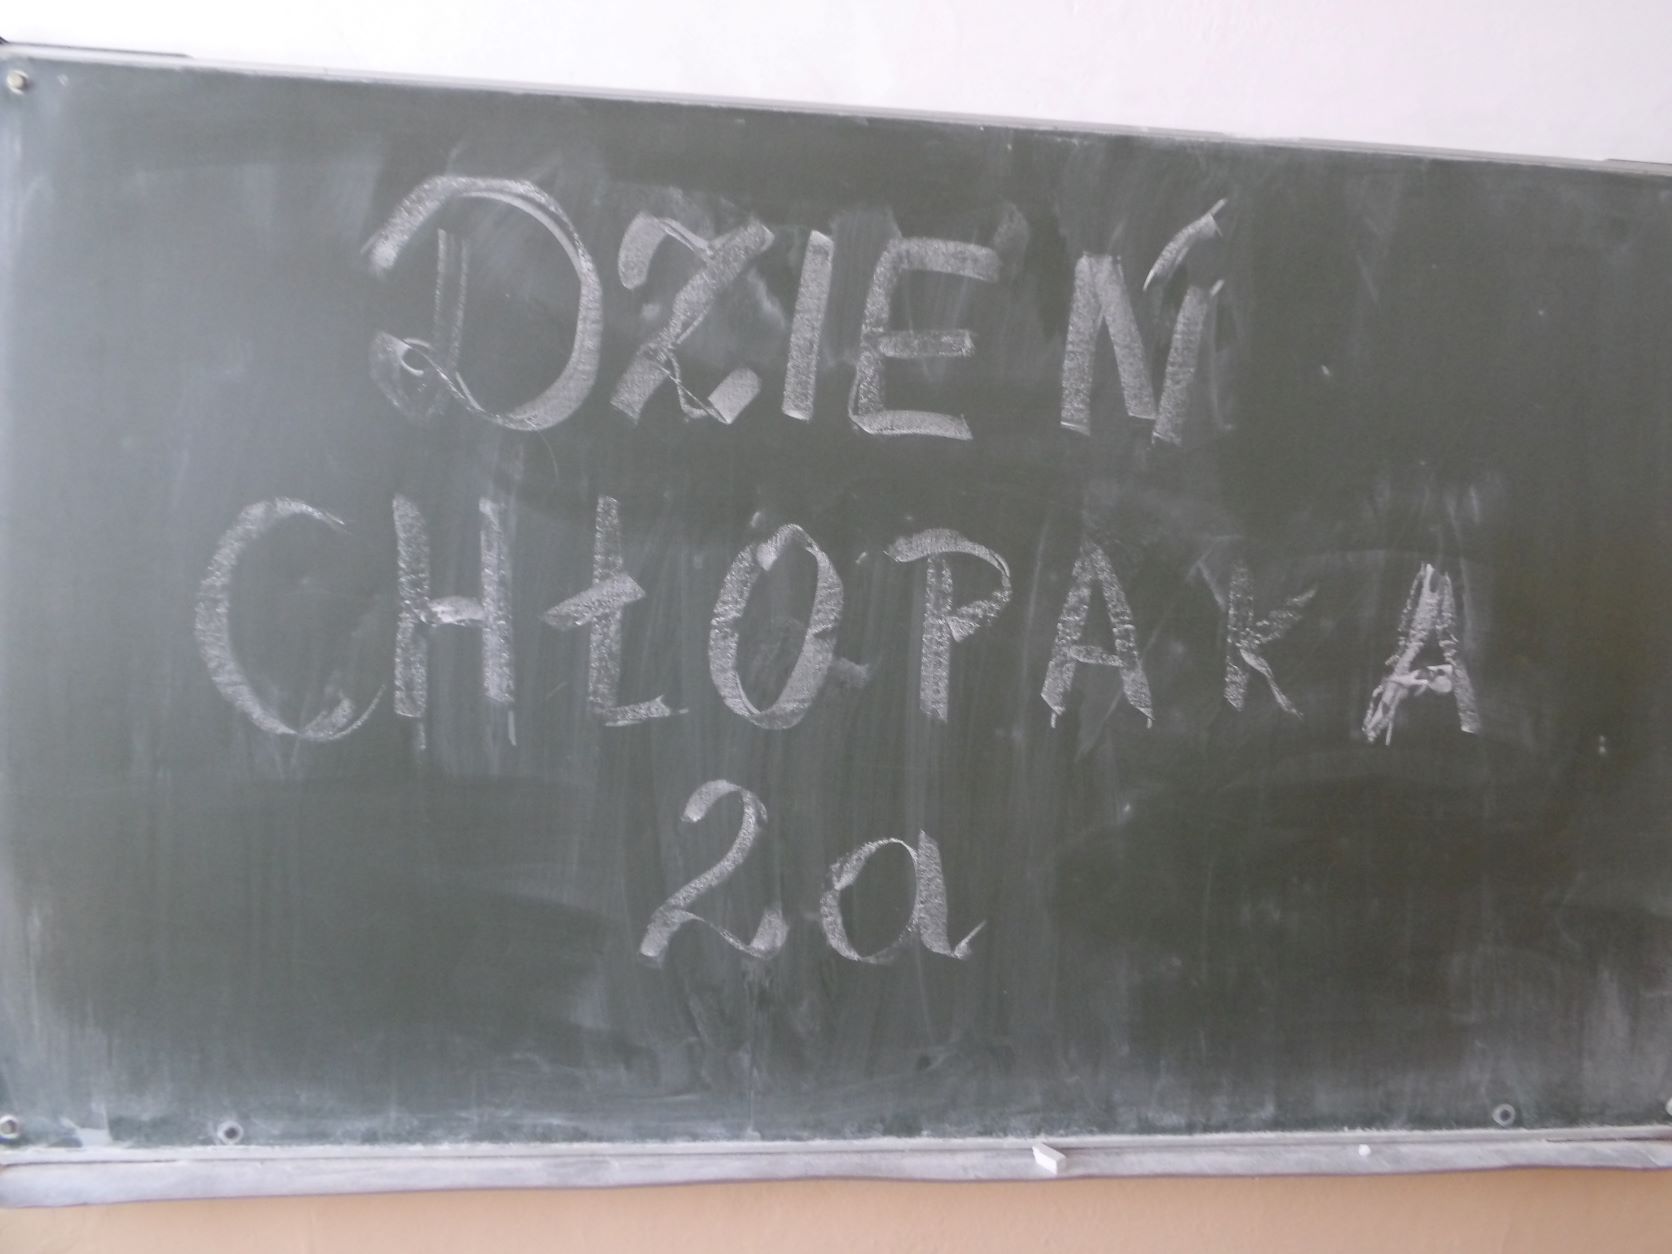 DZIEŃ
CHŁOPAKA
2a